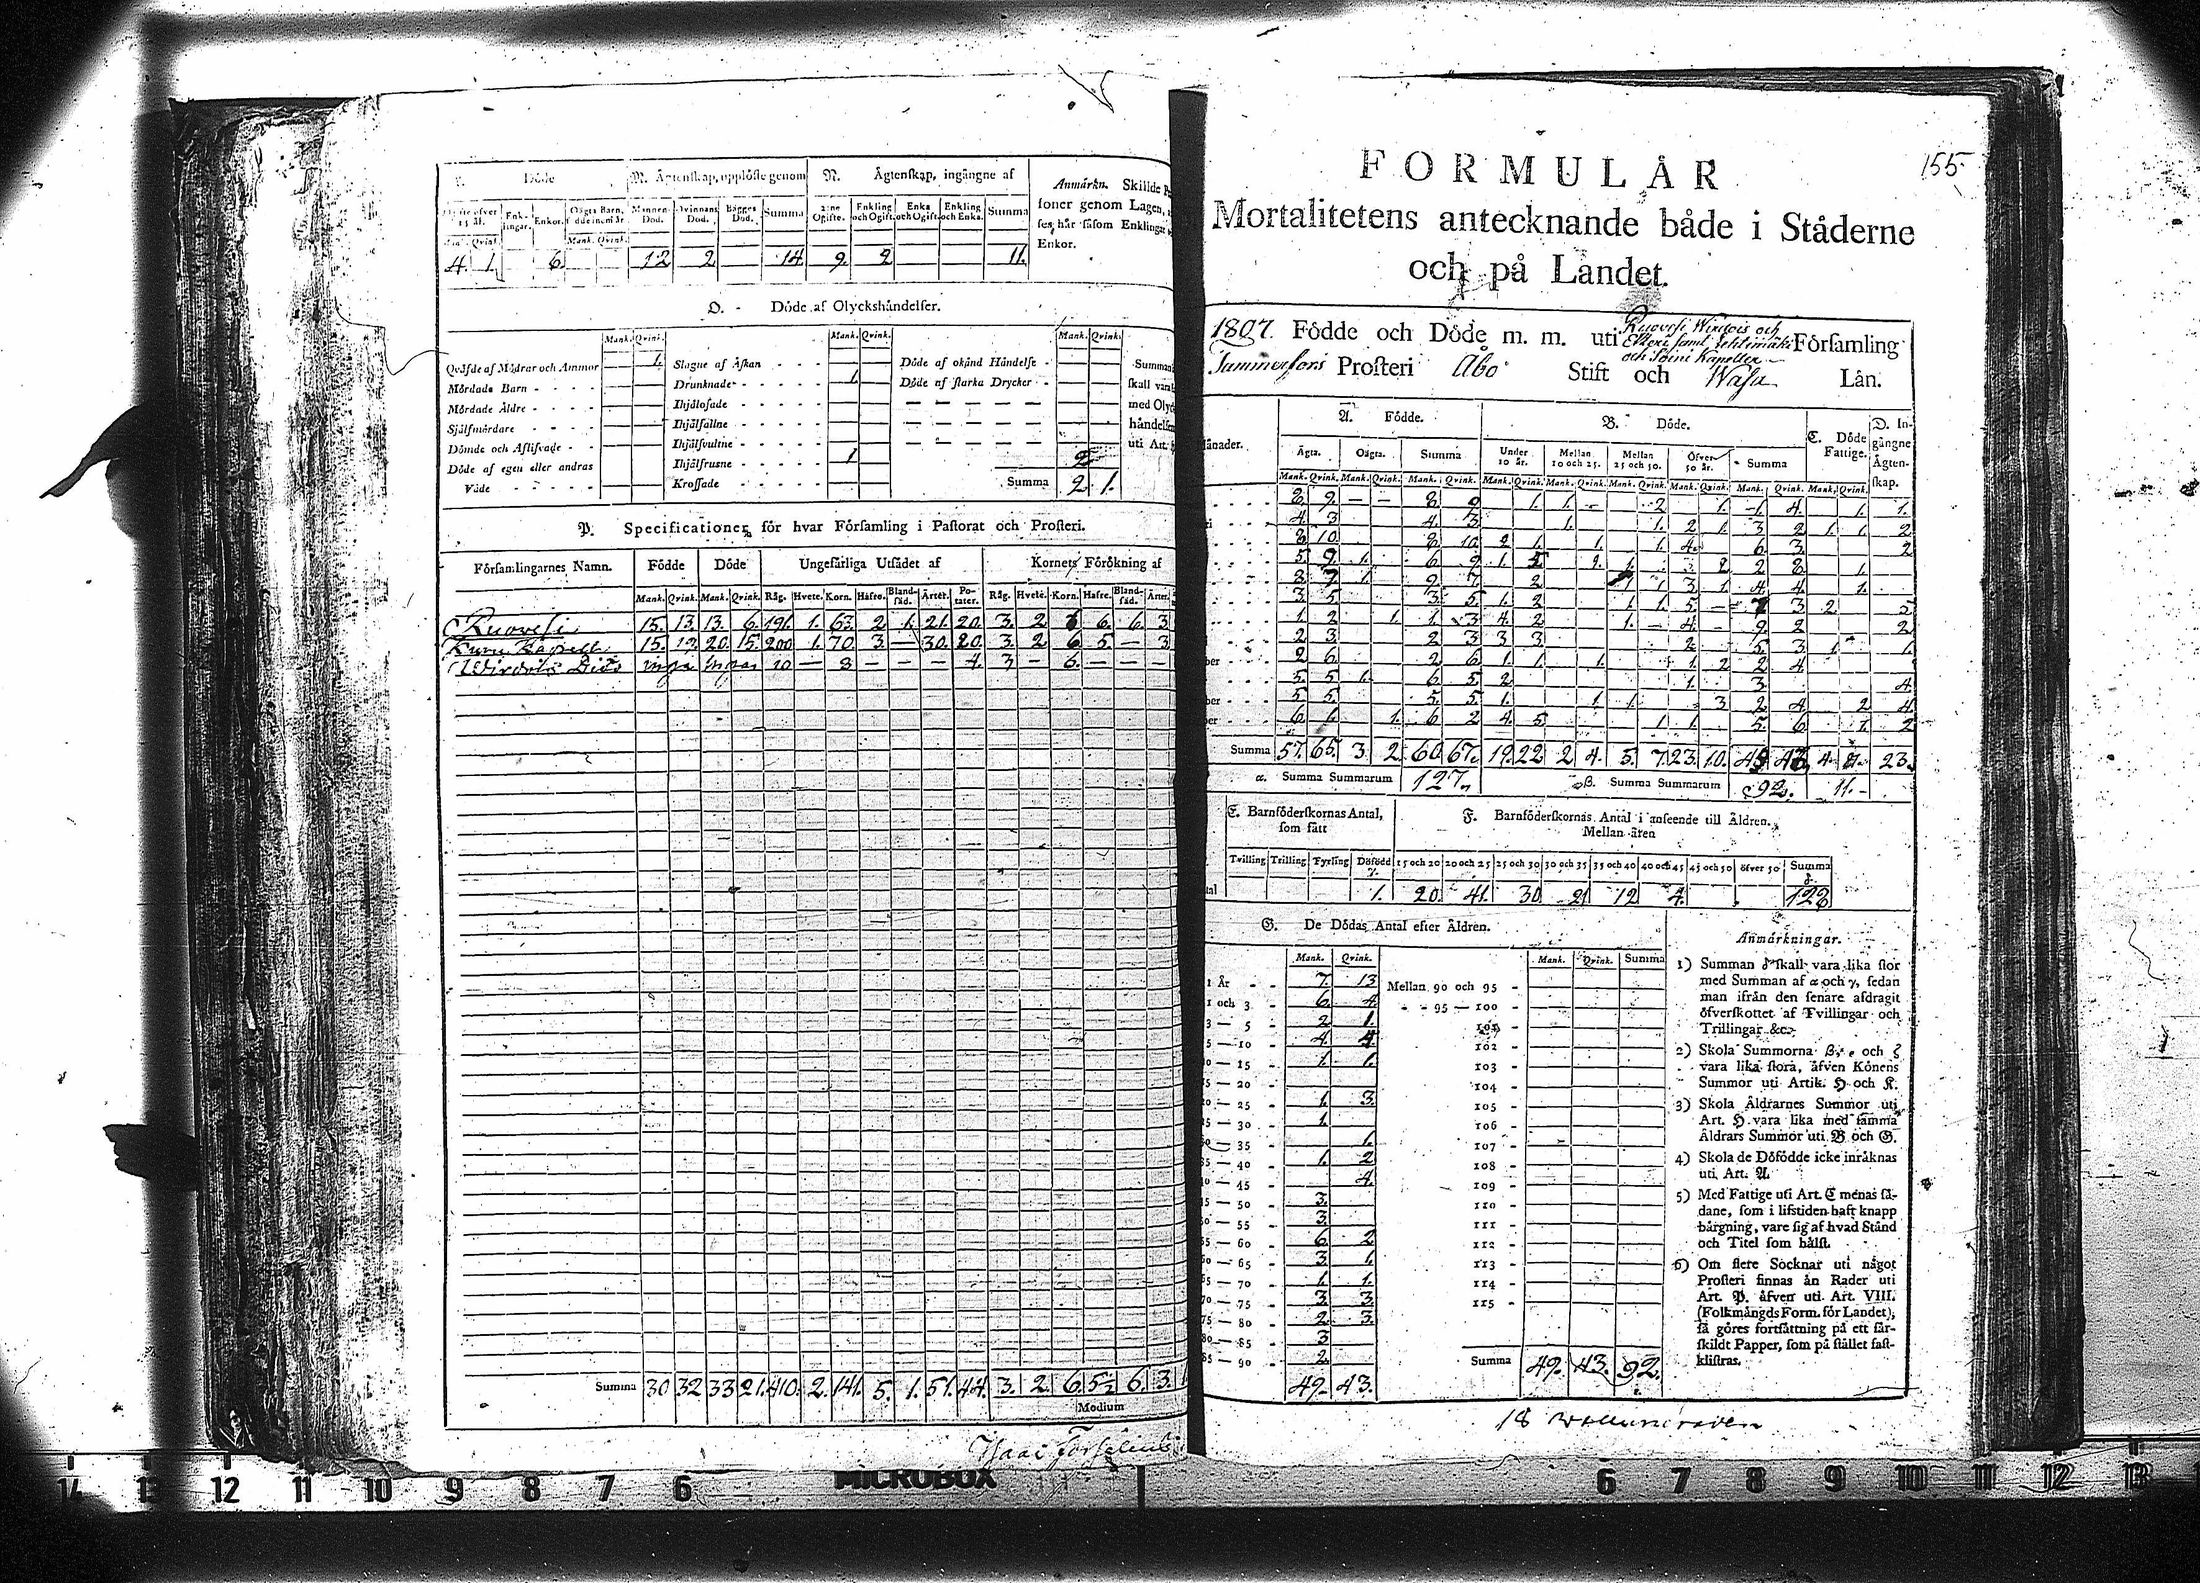 L. Döde
M. Ägtenskap, upplöste genom
N. Ägtenskap, ingångne af
Anmärkn. Skillde
soner genom Lagen,
ses här såsom Enklingar
Enkor.
Enkor.
Mannens Död.
Qvinnans Död.
Bägges Död.
Summa
Enkling och Ogift.
Enka och Ogift.
Enkling och Enka.
Summa
Mank. Qvink.
4. 1. 6. 12 2 14. 9. 2 11.
O. - Döde af Olyckshändelser.
Mank. Qvink. Mank. Qvink. Mank. Qvink.
Qväfde af Mödrar och Ammor 1.
Mördade Barn - - - -
Mördade Äldre - - - -
Själfmördare - - - -
Dömde och Aflifvade - -
Döde af egen eller andras
Våde - - - - -
Slagne af Åskan - - -
Drunknade - - - - 1.
Ihjälosade - - - -
Ihjälfallne - - - -
Ihjälsvultne - - - -
Ihjälfrusne - - - - 1
Krossade - - - -
Döde af okänd Händelse -
Döde af starka Drycker -
Summa 2 1.
Summan
skall vara
med Olyck
händelser
uti Art.
P. Specificationer för hvar Församling i Pastorat och Prosteri.
Församlingarnes Namn. Födde Döde Ungefärliga Utsädet af Kornets Förökning af
Mank. Qvink. Mank. Qvink. Råg. Hvete. Korn. Hafre. Bland-säd. Ärter. Po-tater. Råg. Hvete. Korn. Hafre. Bland-säd. Ärter.
Ruovesi 15. 13. 13. 6. 191. 1. 63. 2 1. 21. 20. 3. 2 6 6. 6 3
Kuru Kapell 15. 19. 20. 15. 200 1. 70. 3 — 30. 20. 3. 2 6 5. — 3
Wirdois 10 — 8 — — — 4. 3 — 6. — — —
Summa 30 32 33 21. 410. 2. 141. 5. 1. 51. 44. 3. 2. 6. 5½ 6. 3.
Modium
Isaac Forselius
155.
FORMULÄR
Mortalitetens antecknande både i Städerne
och på Landet.
1807. Födde och Döde m. m. uti Ruovesi Wirdois och
Etseri samt Lehtimäki Församling
och Soini Kapeller
Tammerfors Prosteri Åbo Stift och Wasa Län.
A. Födde. B. Döde. C. Döde Fattige. D. Ingångne Ägtenskap.
Månader. Ägta. Oägta. Summa Under 10 år. Mellan 10 och 25. Mellan 25 och 50. Öfver 50 år. Summa
Mank. Qvink. Mank. Qvink. Mank. Qvink. Mank. Qvink. Mank. Qvink. Mank. Qvink. Mank. Qvink. Mank. Qvink. Mank. Qvink.
8. 9. — — 8. 9 1. 1. - 2 1. 1. 4. 1. 1.
4. 3 4. 3 1. 1. 2 1. 3 2 1. 1. 2
8 10 8. 10 2 1. 1. 1. 4. 6 3 2
5. 9. 1. 6 9 1. 5 2. 1. 2 2 8. 1.
8 7 1 9. 7. 2 1 3 1. 4. 4. 1.
3. 5 3. 5. 1. 2 1. 1. 5. 7 3 2. 5
1. 2 1. 1. 3 4. 2 1. 4. 9. 2 2
2 3 2 3 3 3 2 5. 3 1. 1.
2 6. 2 6 1. 1. 1. 1. 2 2 4.
5. 5. 1. 6 5. 2 1. 3 4.
5. 5. 5. 5. 1. 1. 1. 3 2 4. 2 4.
6. 1. 1. 6 2 4. 5. 1. 1. 5. 6 1. 2
Summa 57. 65. 3. 2. 60. 67. 19. 22 2 4. 5. 7. 23. 10. 49 43 4. 23.
α. Summa Summarum 127. β. Summa Summarum 92. 11. -
E. Barnföderskornas Antal,
som fått
F. Barnföderskornas Antal i anseende till Åldren.
Mellan åren
Tvilling Trilling Fyrling Dödfödd γ. 15 och 20 20 och 25 25 och 30 30 och 35 35 och 40 40 och 45 45 och 50 öfver 50 Summa δ
1. 20. 41. 30. 21 12 4. 128
G. De Dödas Antal efter Åldren.
Mank. Qvink. Mank. Qvink. Summa
1 År - - 7. 13
1 och 3 - 6. 4.
3 — 5 - 2 1.
5 — 10 - 4. 4.
10 — 15 - 1. 1.
15 — 20 -
20 — 25 - 1. 3.
25 — 30 - 1.
30 — 35 - 1.
35 — 40 - 1. 2
40 — 45 - 4.
45 — 50 - 3.
50 — 55 - 3.
55 — 60 - 6. 2
60 — 65 - 3. 1.
65 — 70 - 1. 1.
70 — 75 - 3. 3.
75 — 80 - 2. 3.
80 — 85 - 3
85 — 90 - 2.
49. 43.
Mellan 90 och 95 -
- - 95 — 100 -
101 -
102 -
103 -
104 -
105 -
106 -
107 -
108 -
109 -
110 -
111 -
112 -
113 -
114 -
115 -
Summa 49. 43. 92.
Anmärkningar.
1) Summan δ skall vara lika stor
med Summan af α och γ, sedan
man ifrån den senare afdragit
öfverskottet af Tvillingar och
Trillingar &c.
2) Skola Summorna β, ε och ζ
vara lika stora, äfven Könens
Summor uti Artik. H och K.
3) Skola Åldrarnes Summor uti
Art. H vara lika med samma
Åldrars Summor uti B och G.
4) Skola de Dödfödde icke inräknas
uti Art. A.
5) Med Fattige uti Art. C menas så-
dane, som i lifstiden haft knapp
bärgning, vare sig af hvad Stånd
och Titel som hälst.
6) Om flere Socknar uti något
Prosteri finnas än Rader uti
Art. P. äfven uti Art. VIII.
(Folkmängds Form. för Landet),
så göres fortsättning på ett sär-
skildt Papper, som på stället fast-
klistras.
14 13 12 11 10 9 8 7 6 MICROBOX 6 7 8 9 10 11 12 13